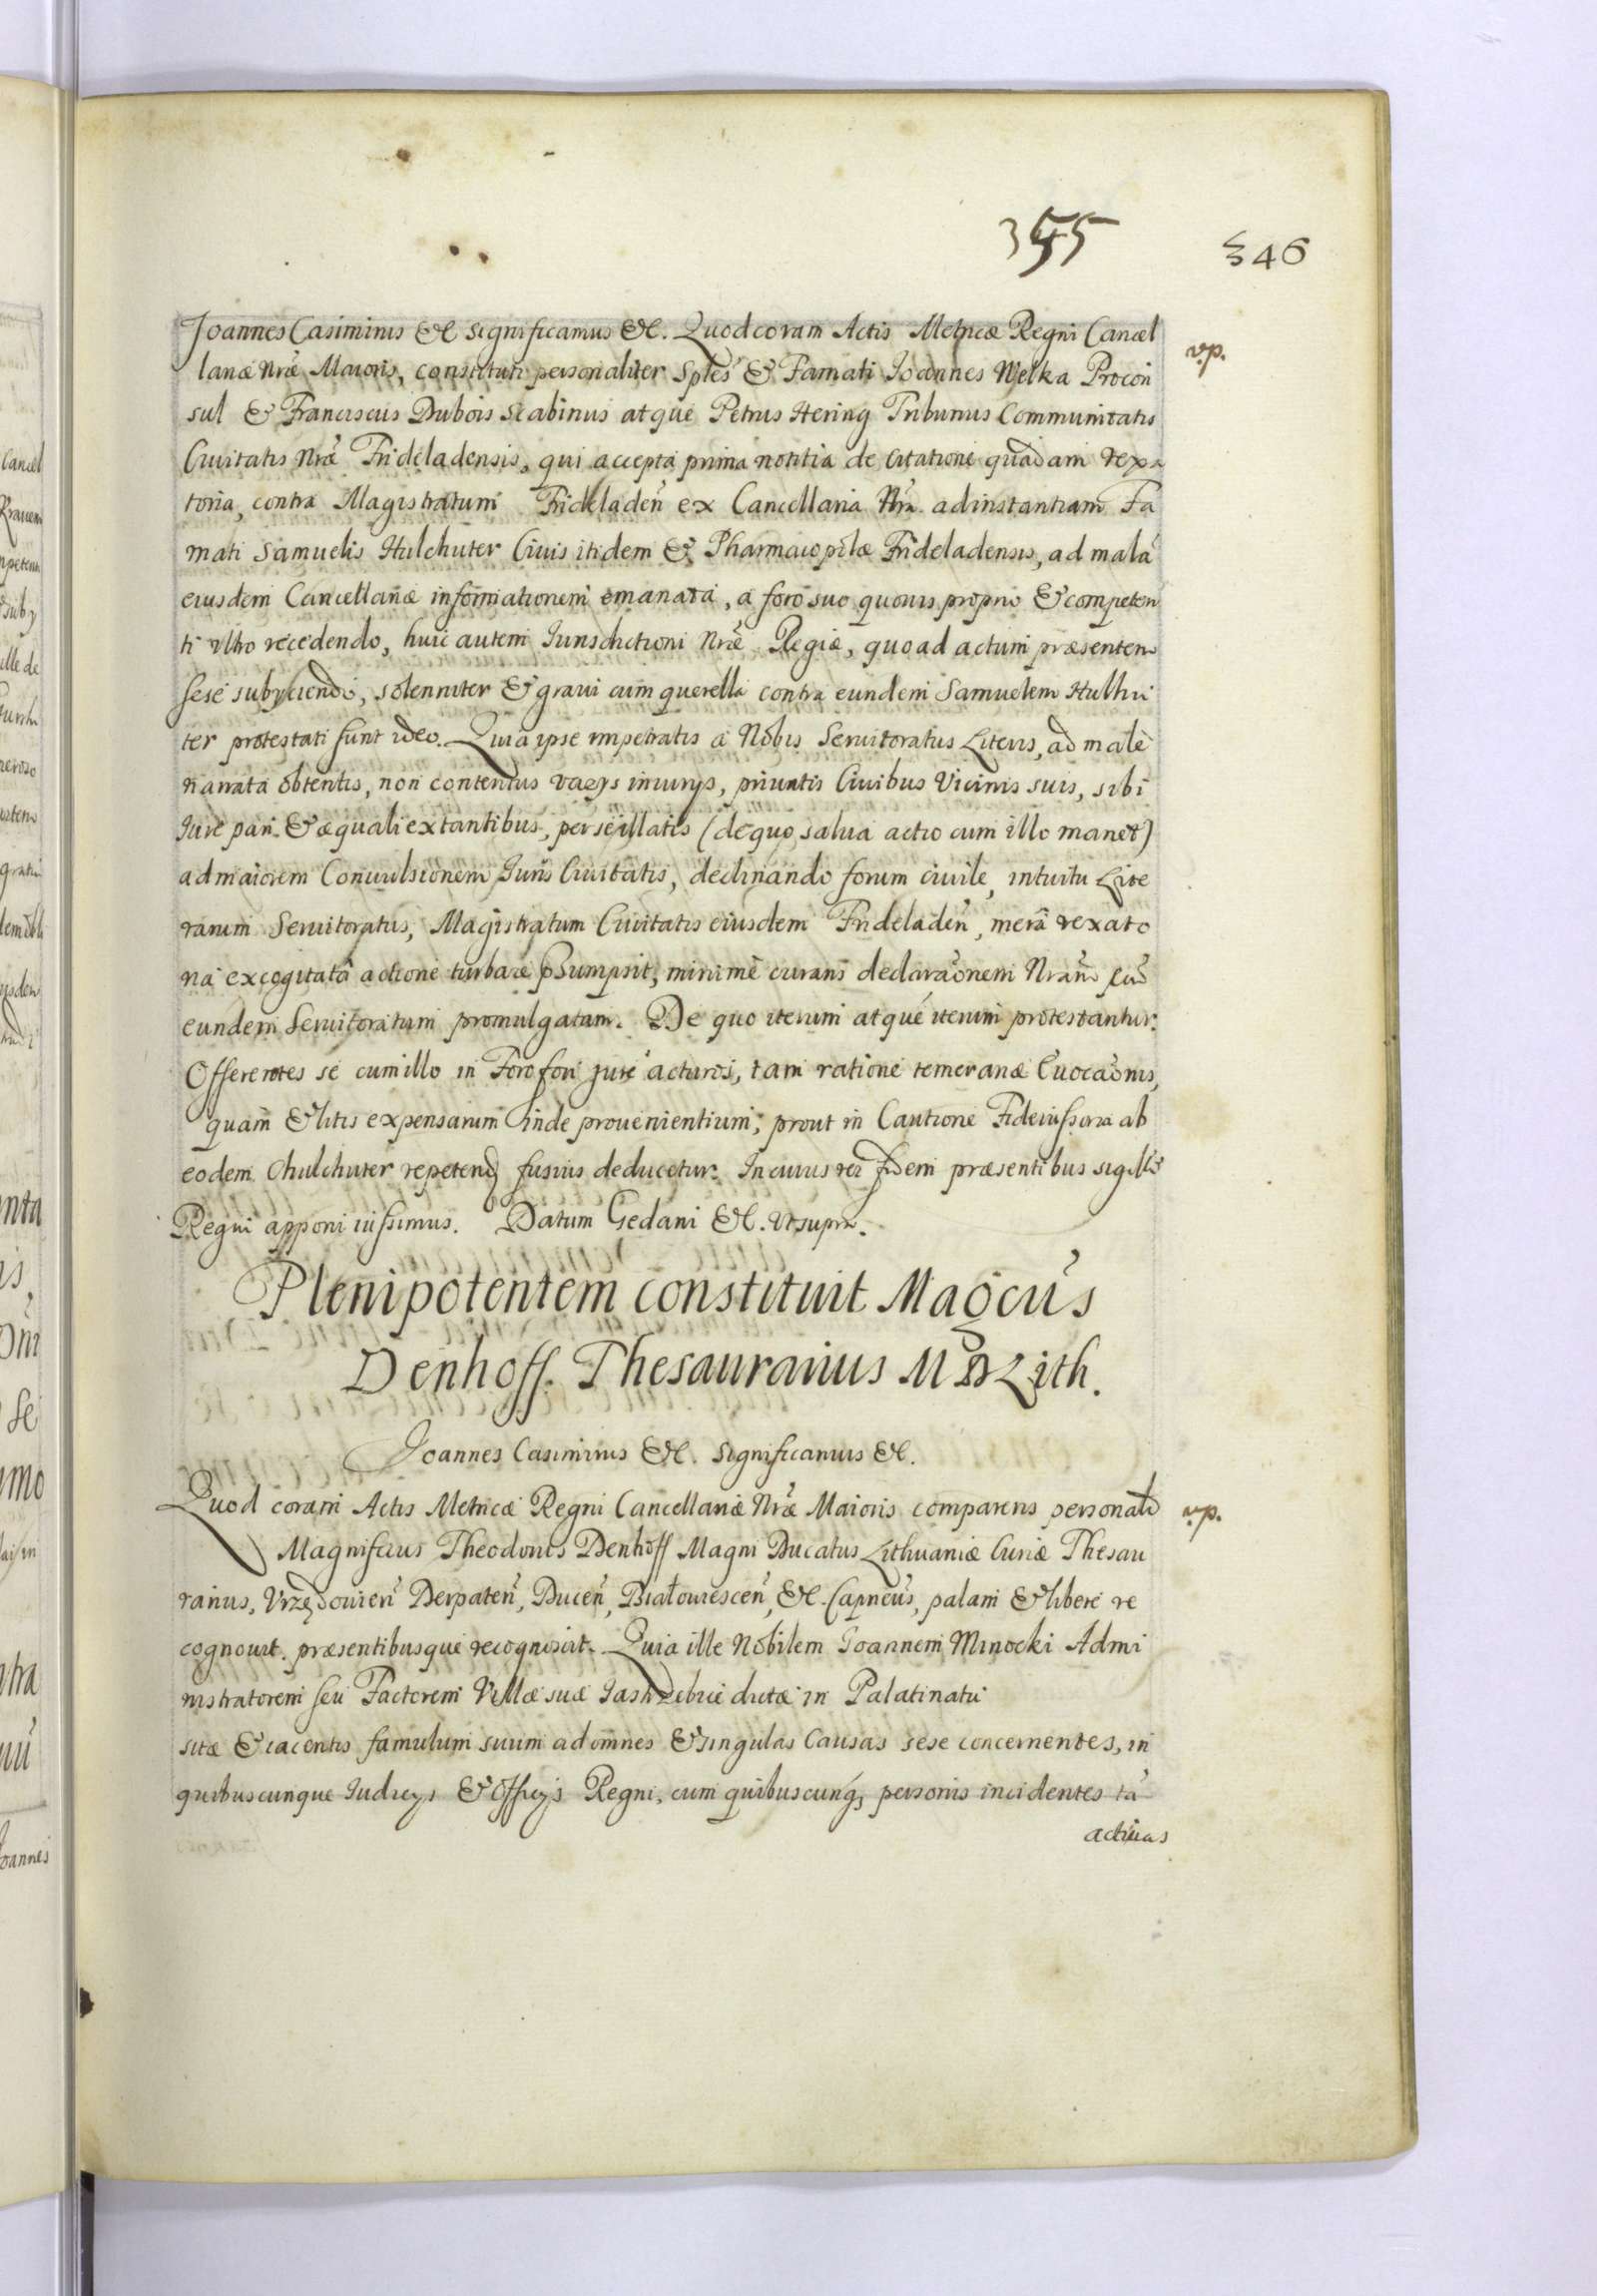 355
346
Joannes Casimirus &c significamus &c. Quod coram Actis Metricæ Regni Cancel
lariæ Nræ Maioris, constituti personaliter Sptes & Famati Joannes Welka Procon
sul & Franciscus Dubois Scabinus atque Petrus Hering Tribunus Communitatis
Civitatis Nræ Frideladensis, qui accepta prima notitia de citatione quadam vexa
toria, contra Magistratum Frideladen ex Cancellaria Nra ad instantiam Fa
mati Samuelis Hulchuter Civis itidem & Pharmacopolæ Frideladensis, ad mala
eiusdem Cancellariæ informationem emanata, a foro suo quovis proprio & competen
ti ultro recedendo, huic autem Iurisdictioni Nræ Regiæ, quoad actum præsentem
sese subyciendo, solenniter & gravi cum querella contra eundem Samuelem Hulhu
ter protestati sunt ideo. Quia ipse impetratis a Nobis Servitoratus Literis, ad male
narrata obtentis, non contentus varys iniurys, privatis Civibus Vicinis suis, sibi
Iure pari & æquali extantibus, per se illatis (de quo salva actio cum illo manet)
ad maiorem Convulsionem Iuris Civitatis, declinando forum civile, intuitu Lite
rarum Servitoratus, Magistratum Civitatis eiusdem Frideladen, mera vexato
ria excogitata actione turbare psumpsit, minime curans declaraonem Nram
eundem Servitoratum promulgatam. De quo iterum atque iterum protestantur.
Offerentes se cum illo in Foro fori jure acturos, tam ratione temerariæ Evocaonis,
quam & litis expensarum inde provenientium, prout in Cautione Fideiussoria ab
eodem Chulchuter repetend fusius deducetur. In cuius rei fidem præsentibus sigillu
Regni apponi iussimus. Datum Gedani &c. ut supra.
Plenipotentem constituit Magcus
Denhoff. Thesaurarius M D Lith.
Joannes Casimirus &c. Significamus &c.
Quod coram Actis Metricæ Regni Cancellariæ Nræ Maioris comparens personalr
Magnificus Theodorus Denhoff Magni Ducatus Lithuaniæ Curiæ Thesau
rarius, Vrzędovien Derpaten, Ducen, Białouiescen, &c. Capneus, palam & libere re
cognovit. præsentibusque recognoscit. Quia ille Nobilem Joannem Minocki Admi
nistratorem seu Factorem Villæ suæ Jastrzebie dictæ in Palatinatu
sitæ & iacentis famulum suum ad omnes & singulas Causas sese concernentes, in
quibuscunque Iudicys & Officys Regni, cum quibuscunq personis incidentes ta
activas